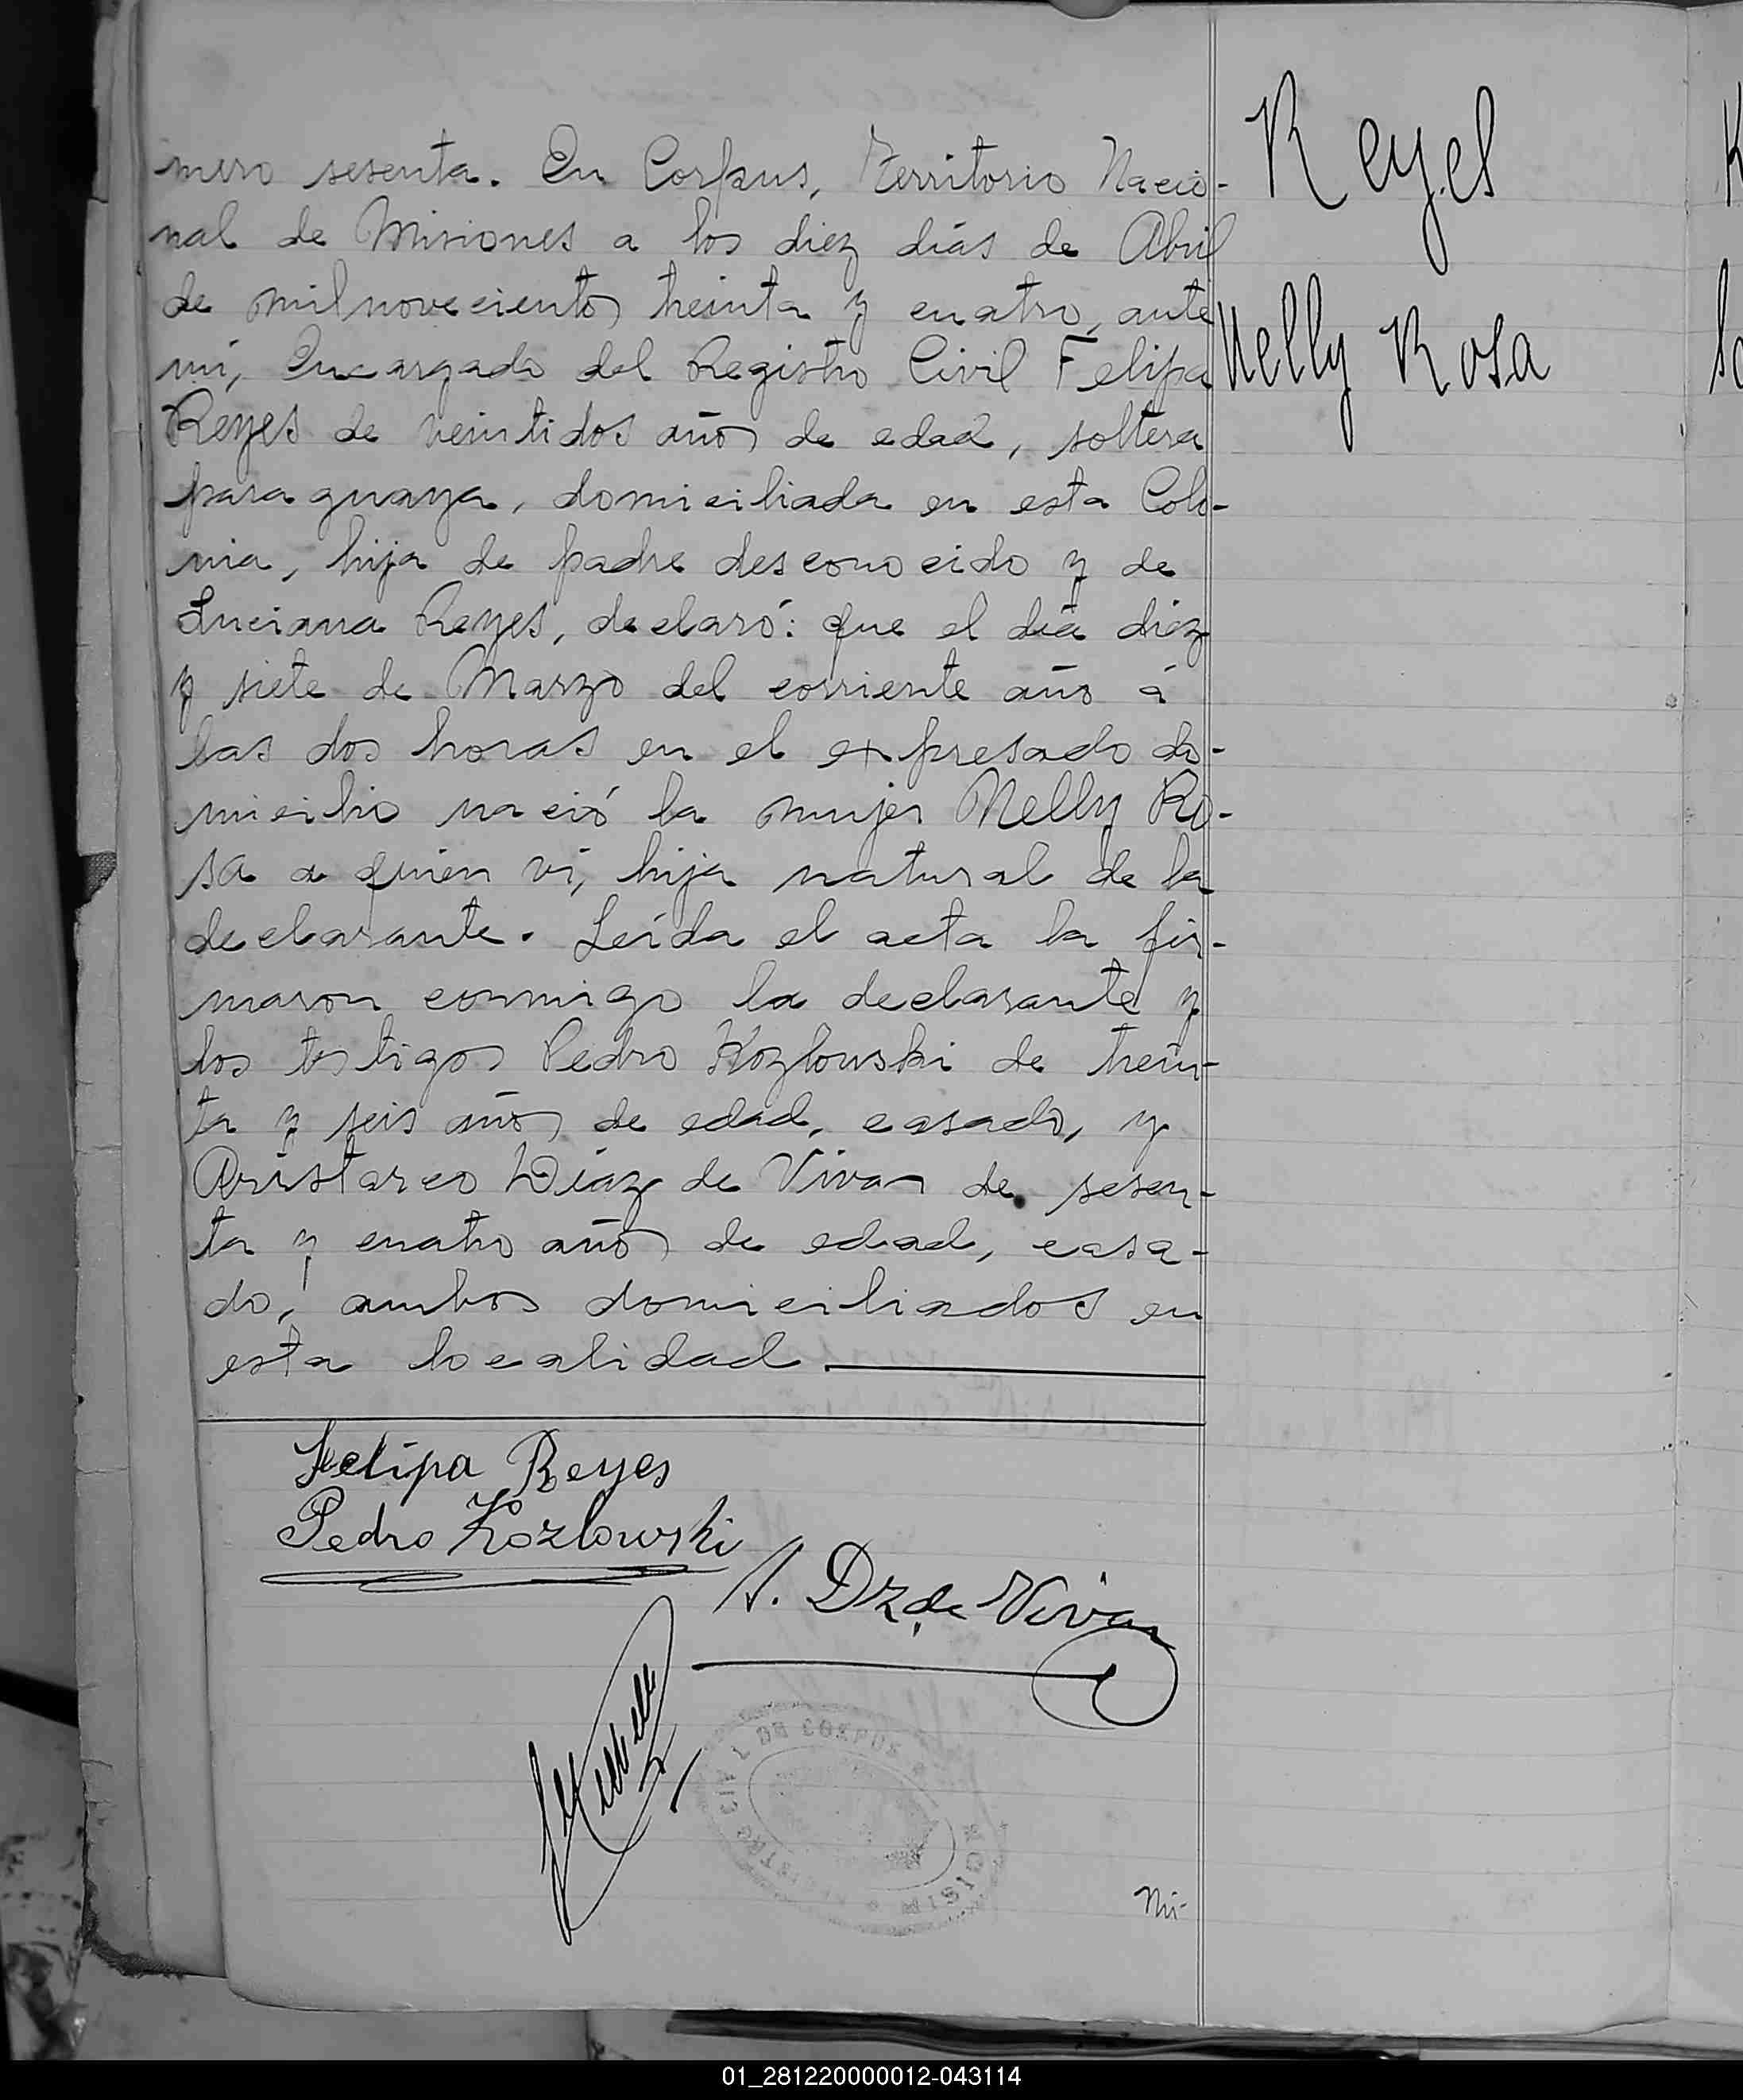 mero sesenta. En Corpus, Territorio Nacio-
nal de Misiones a los diez días de Abril
de milnovecientos treinta y cuatro, ante
mí, Encargado del Registro Civil Felipa
Reyes de veintidos años de edad, soltera
paraguaya, domiciliada en esta Colo-
nia, hija de padre desconocido y de
Luciana Reyes, declaró: que el día diez
y siete de Marzo del corriente año á
las dos horas en el expresado do-
micilio nació la mujer Nelly Ro-
sa a quien vi, hija natural de la
declarante. Leída el acta la fir-
maron conmigo la declarante y
los testigos Pedro Kozlowski de trein-
ta y seis años de edad, casado, y
Aristarco Díaz de Vivar de sesen-
ta y cuatro años de edad, casa-
do, ambos domiciliados en
esta localidad.
Reyes
Nelly Rosa
Felipa Reyes
Pedro Kozlowski
A. Dz de Vivar
REGISTRO CIVIL DE CORPUS
MISIONES
Nú-
01_281220000012-043114